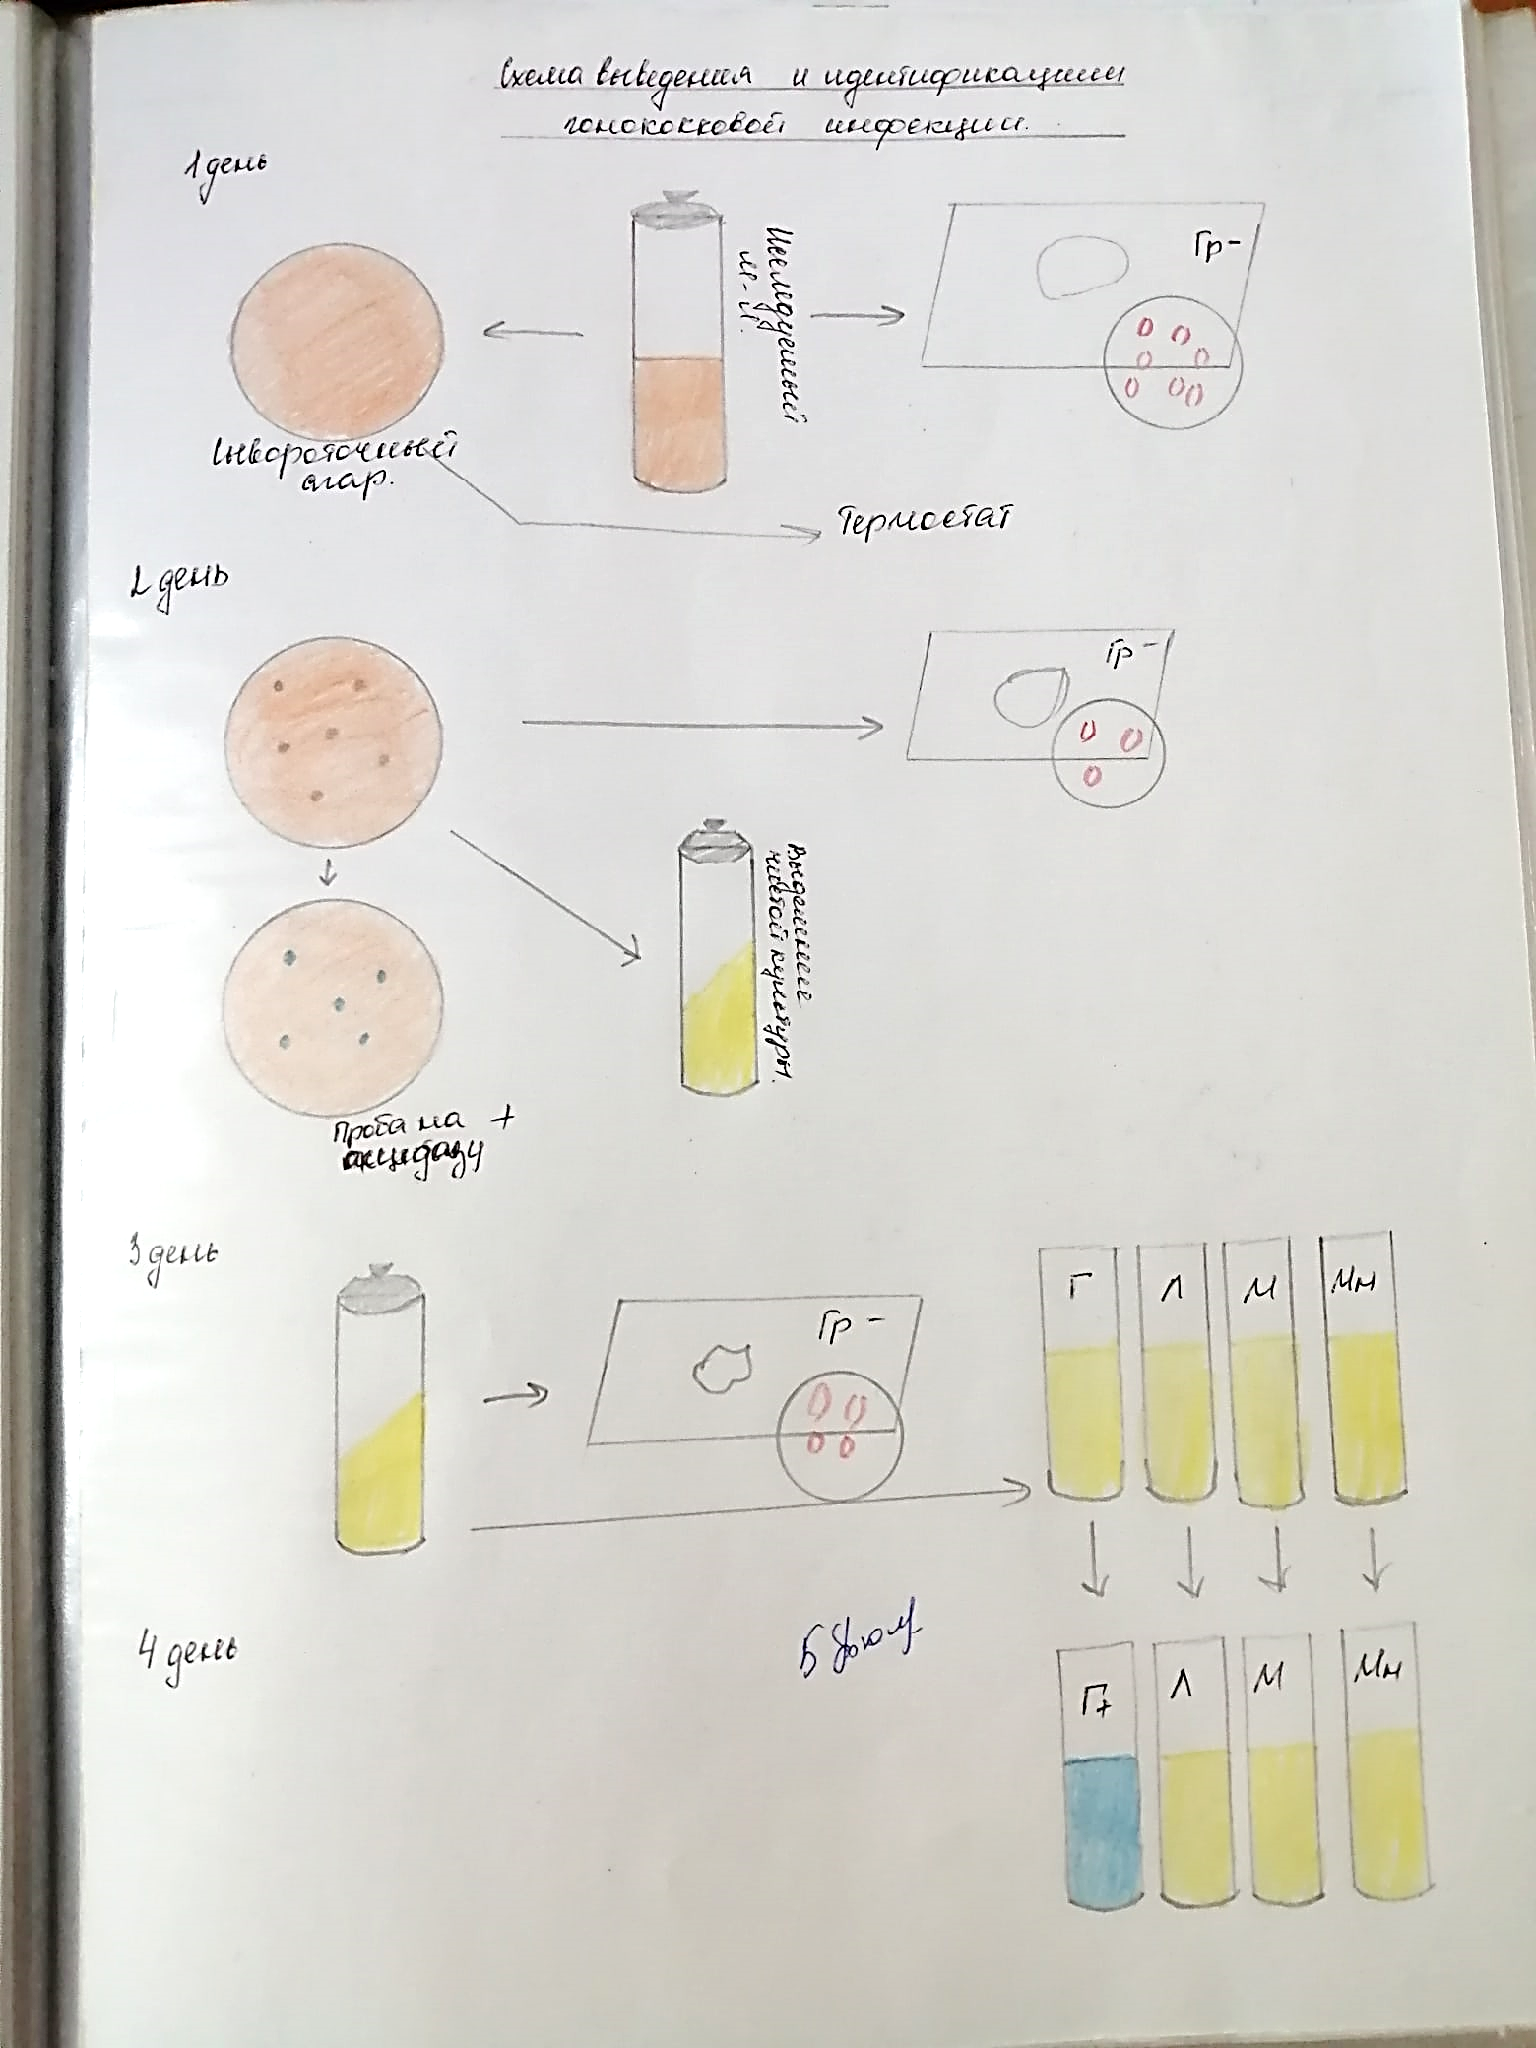 Схема выведения и идентификации
гонококковой инфекции.
1 день
Гр-
Исследуемый
м-л.
Сывороточный
агар.
Термостат
2 день
Гр-
Выделение
чистой культуры.
Проба на +
оксидазу
3 день
Гр-
Г Л М Мн
4 день
Г+ Л М Мн